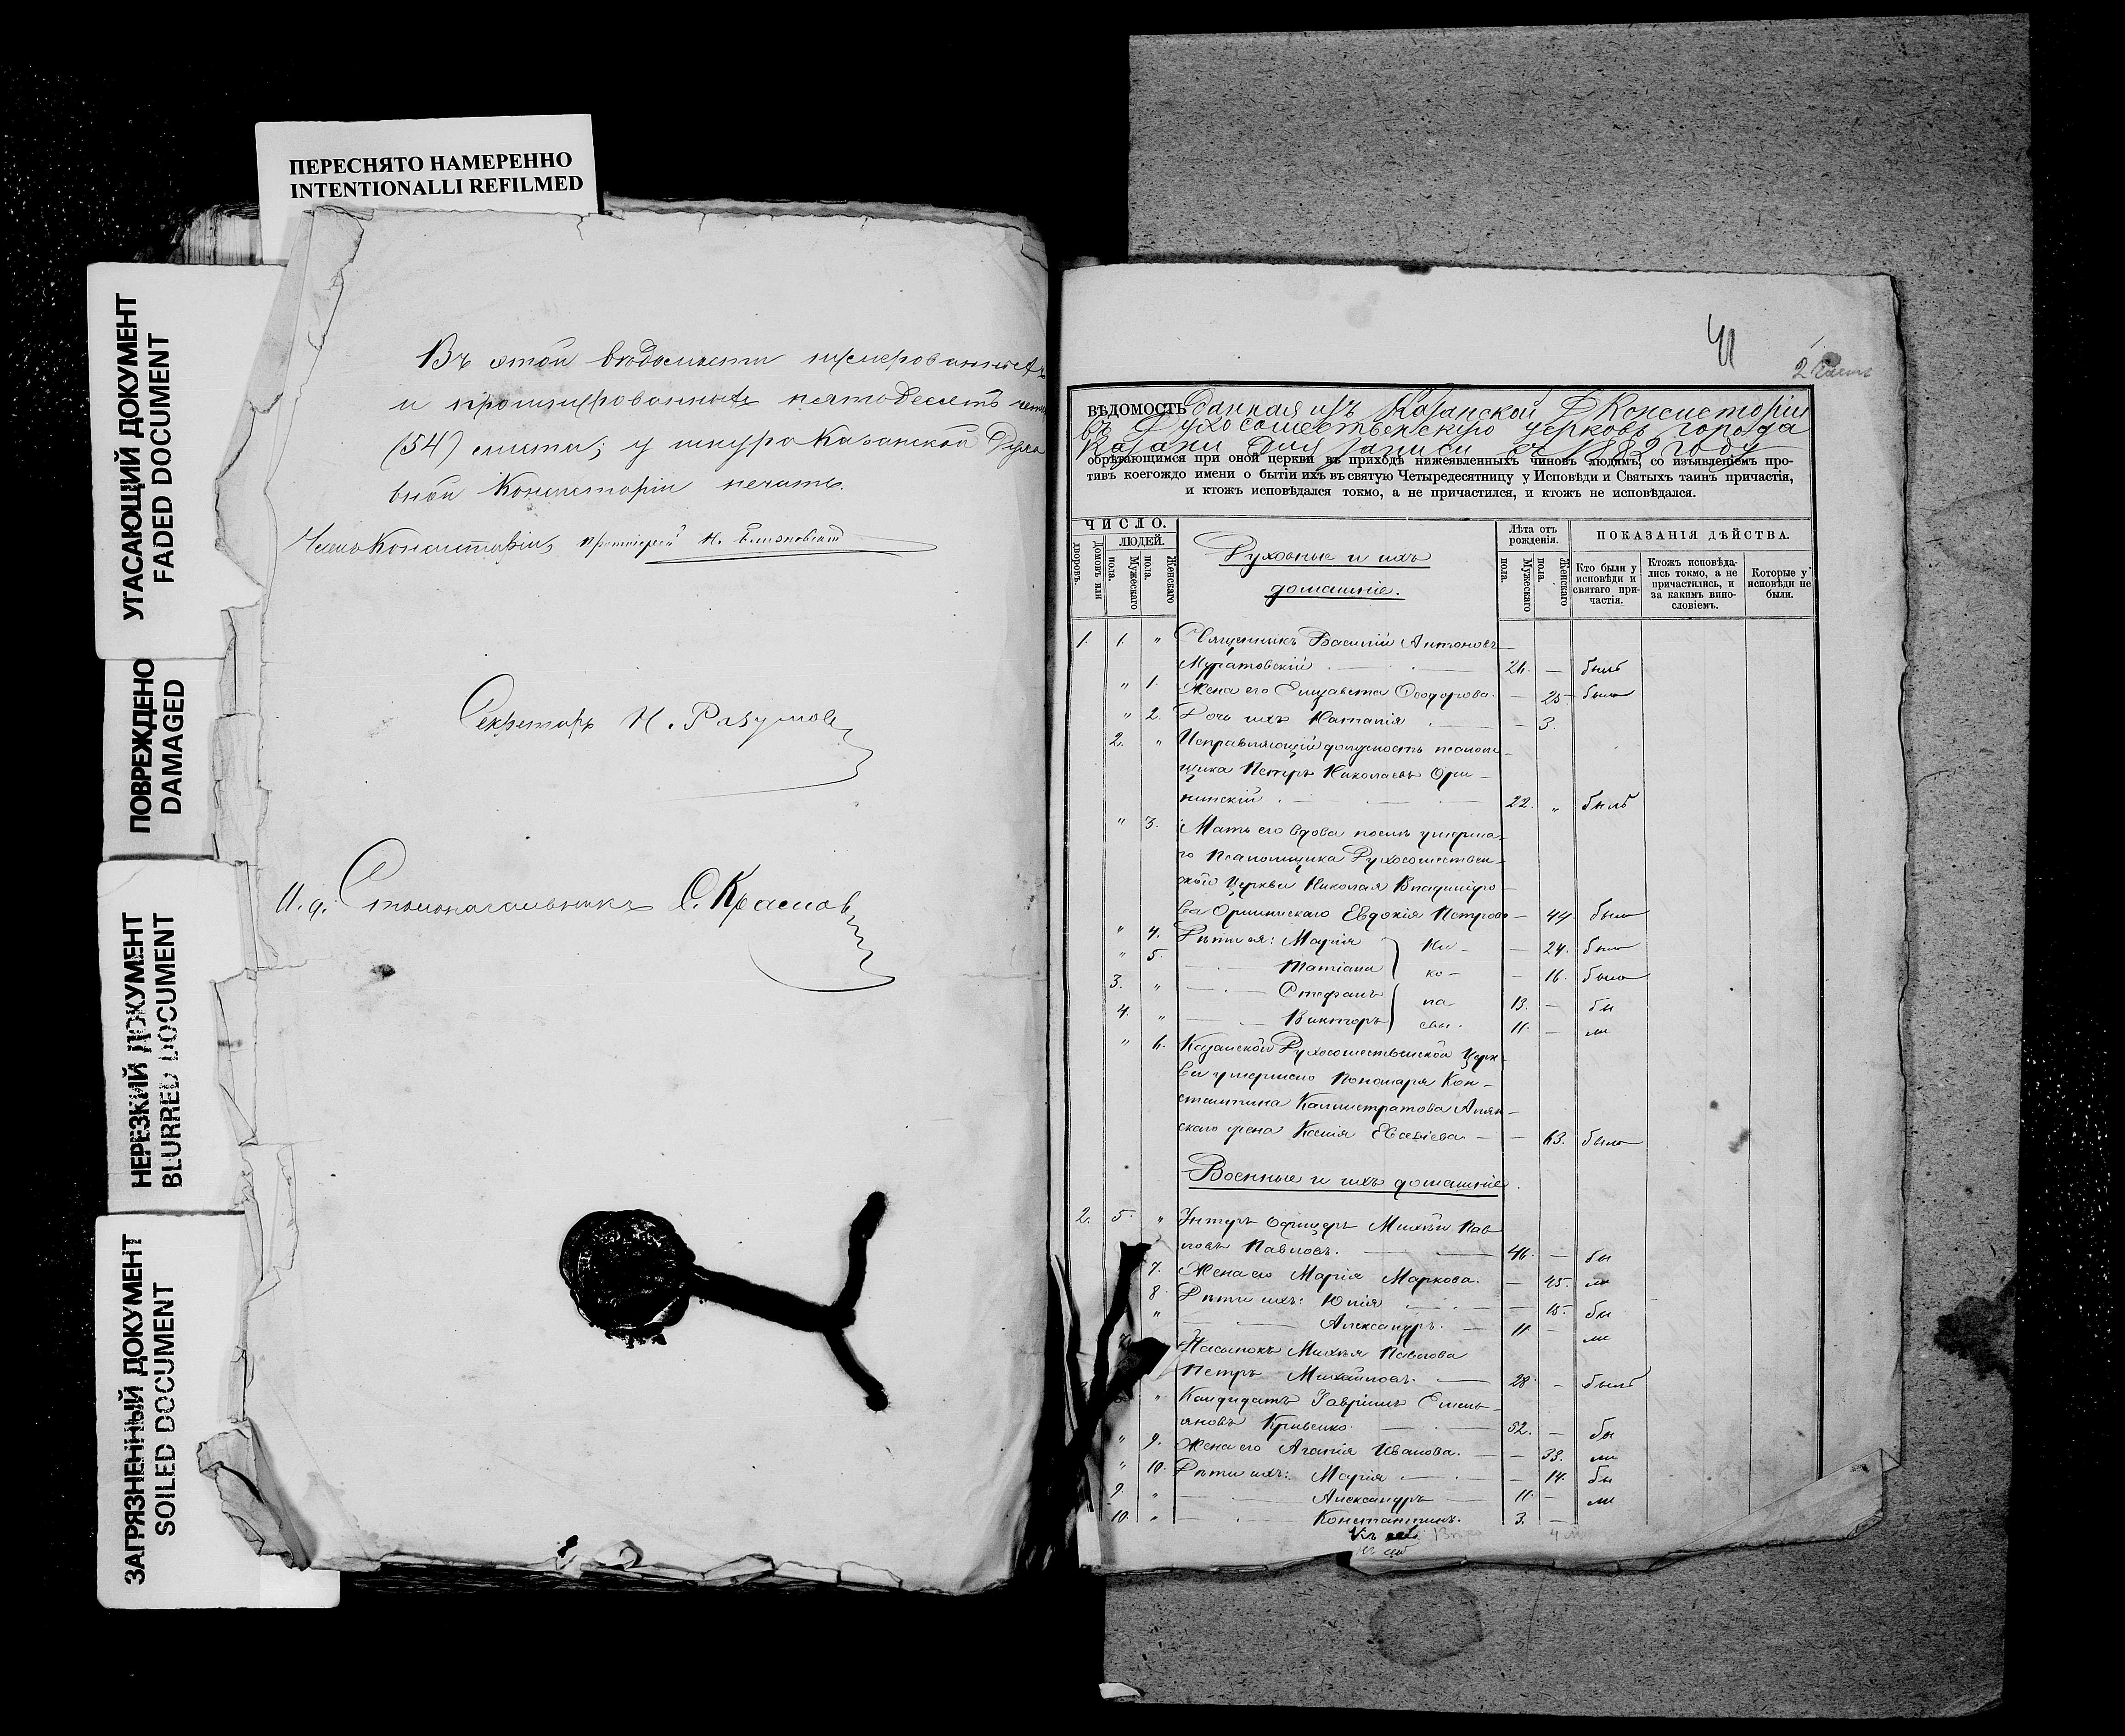 ПЕРЕСНЯТО НАМЕРЕННО
INTENTIONALLI REFILMED
УГАСАЮЩИЙ ДОКУМЕНТ
FADED DOCUMENT
ПОВРЕЖДЕНО
DAMAGED
НЕРЕЗКИЙ ДОКУМЕНТ
BLURRED DOCUMENT
ЗАГРЯЗНЕННЫЙ ДОКУМЕНТ
SOILED DOCUMENT
Въ этой вѣдомости нумерованныхъ
и прошнурованныхъ пятьдесятъ четы
(54) листа; у шнура Казанской Духо
вной Консисторіи печать.
Членъ Консисторіи, Протоіерей
Секретарь Н. Разумовъ
И. д. Столоначальника С. Красновъ
41
ВѢДОМОСТЬ данная изъ Казанской Д Консисторіи
въ Духосошественскую церковь города
Казани для записи въ 1882 году
обрѣтающимся при оной церкви въ приходѣ нижеявленныхъ чиновъ людямъ, со изъявленіемъ про-
тивъ коегождо имени о бытіи ихъ въ святую Четыредесятницу у Исповѣди и Святыхъ таинъ причастія,
и ктожъ исповѣдался токмо, а не причастился, и ктожъ не исповѣдался.
ЧИСЛО.
ЛЮДЕЙ.
Домовъ или дворовъ.
Мужескаго пола.
Женскаго пола.
Духовные и ихъ
домашніе.
Лѣта отъ рожденія.
Мужескаго пола.
Женскаго пола.
ПОКАЗАНІЯ ДѢЙСТВА.
Кто были у исповѣди и святаго при- частія.
Ктожъ исповѣда- лись токмо, а не причастились, и за какимъ вино- словіемъ.
Которые у исповѣди не были.
1. 1. " Священникъ Василій Антоновъ
Муратовскій 26. — былъ
" 1. Жена его Елизавета Ѳеодорова — 25 была
" 2. Дочь ихъ Наталія — 3.
2. " Исправляющій должность псалом
щика Петръ Николаевъ Ори-
нинскій 22. " былъ
" 3. Мать его вдова послѣ умерша-
го Псаломщика Духосошествен-
ской Церкви Николая Владиміро-
ва Орининскаго Евдокія Петрова — 44. была
" 4. Дѣти ея: Марія Ни- — 24. была
" 5. Татіана ко- — 16. была
3. " Стефанъ ла- 13. — бы
4. " Викторъ евы. 11. — ли
" 6. Казанской Духосошественской Церк-
ви умершаго Пономаря Кон-
стантина Каллистратова
скаго жена Ксенія Евсевіева — 63. была
Военные и ихъ домашніе.
2. 5. " Унтеръ Офицеръ Михѣй Пав
ловъ Павловъ. 46. — бы
7. Жена его Марія Маркова. — 45. ли
8. Дѣти ихъ: Юлія — 15. бы
" Александръ. 11. — ли
Пасынокъ Михѣя Павлова
Петръ Михайловъ. 28. — былъ
" Кандидатъ Гавріилъ Емель-
яновъ Кривенко 52. — бы
" 9. Жена его Агапія Иванова. — 33. ли
" 10. Дѣти ихъ: Марія — 14. бы
9. " Александръ 11. — ли
10. " Константинъ. 3. —